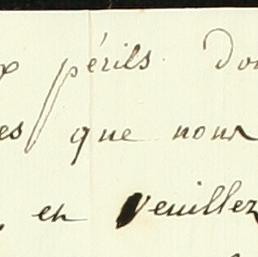 périls don
es que nous
, en veuillez